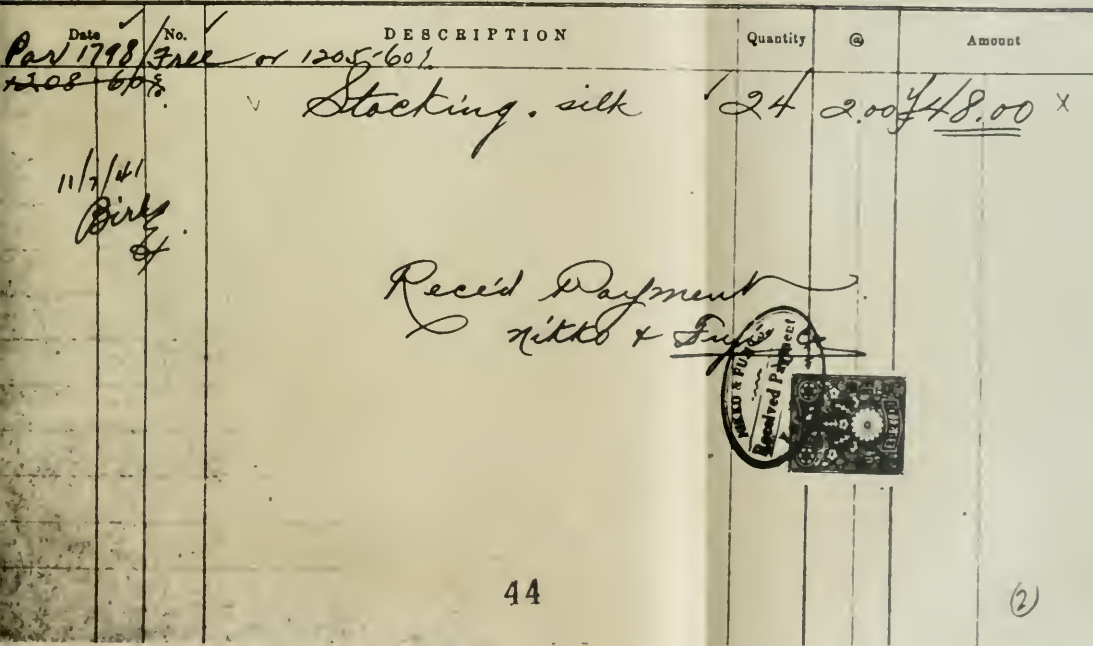 Date No. DESCRIPTION Quantity @ Amount
Par 1798 Free or 1205-60%
1208 60%
Stocking. silk 24 2.00 ¥48.00 x
11/7/41
Birks
Rece'd Payment
Nikko & Fuji Co
NIKKO & FUJI CO.
Received Payment
44
(2)